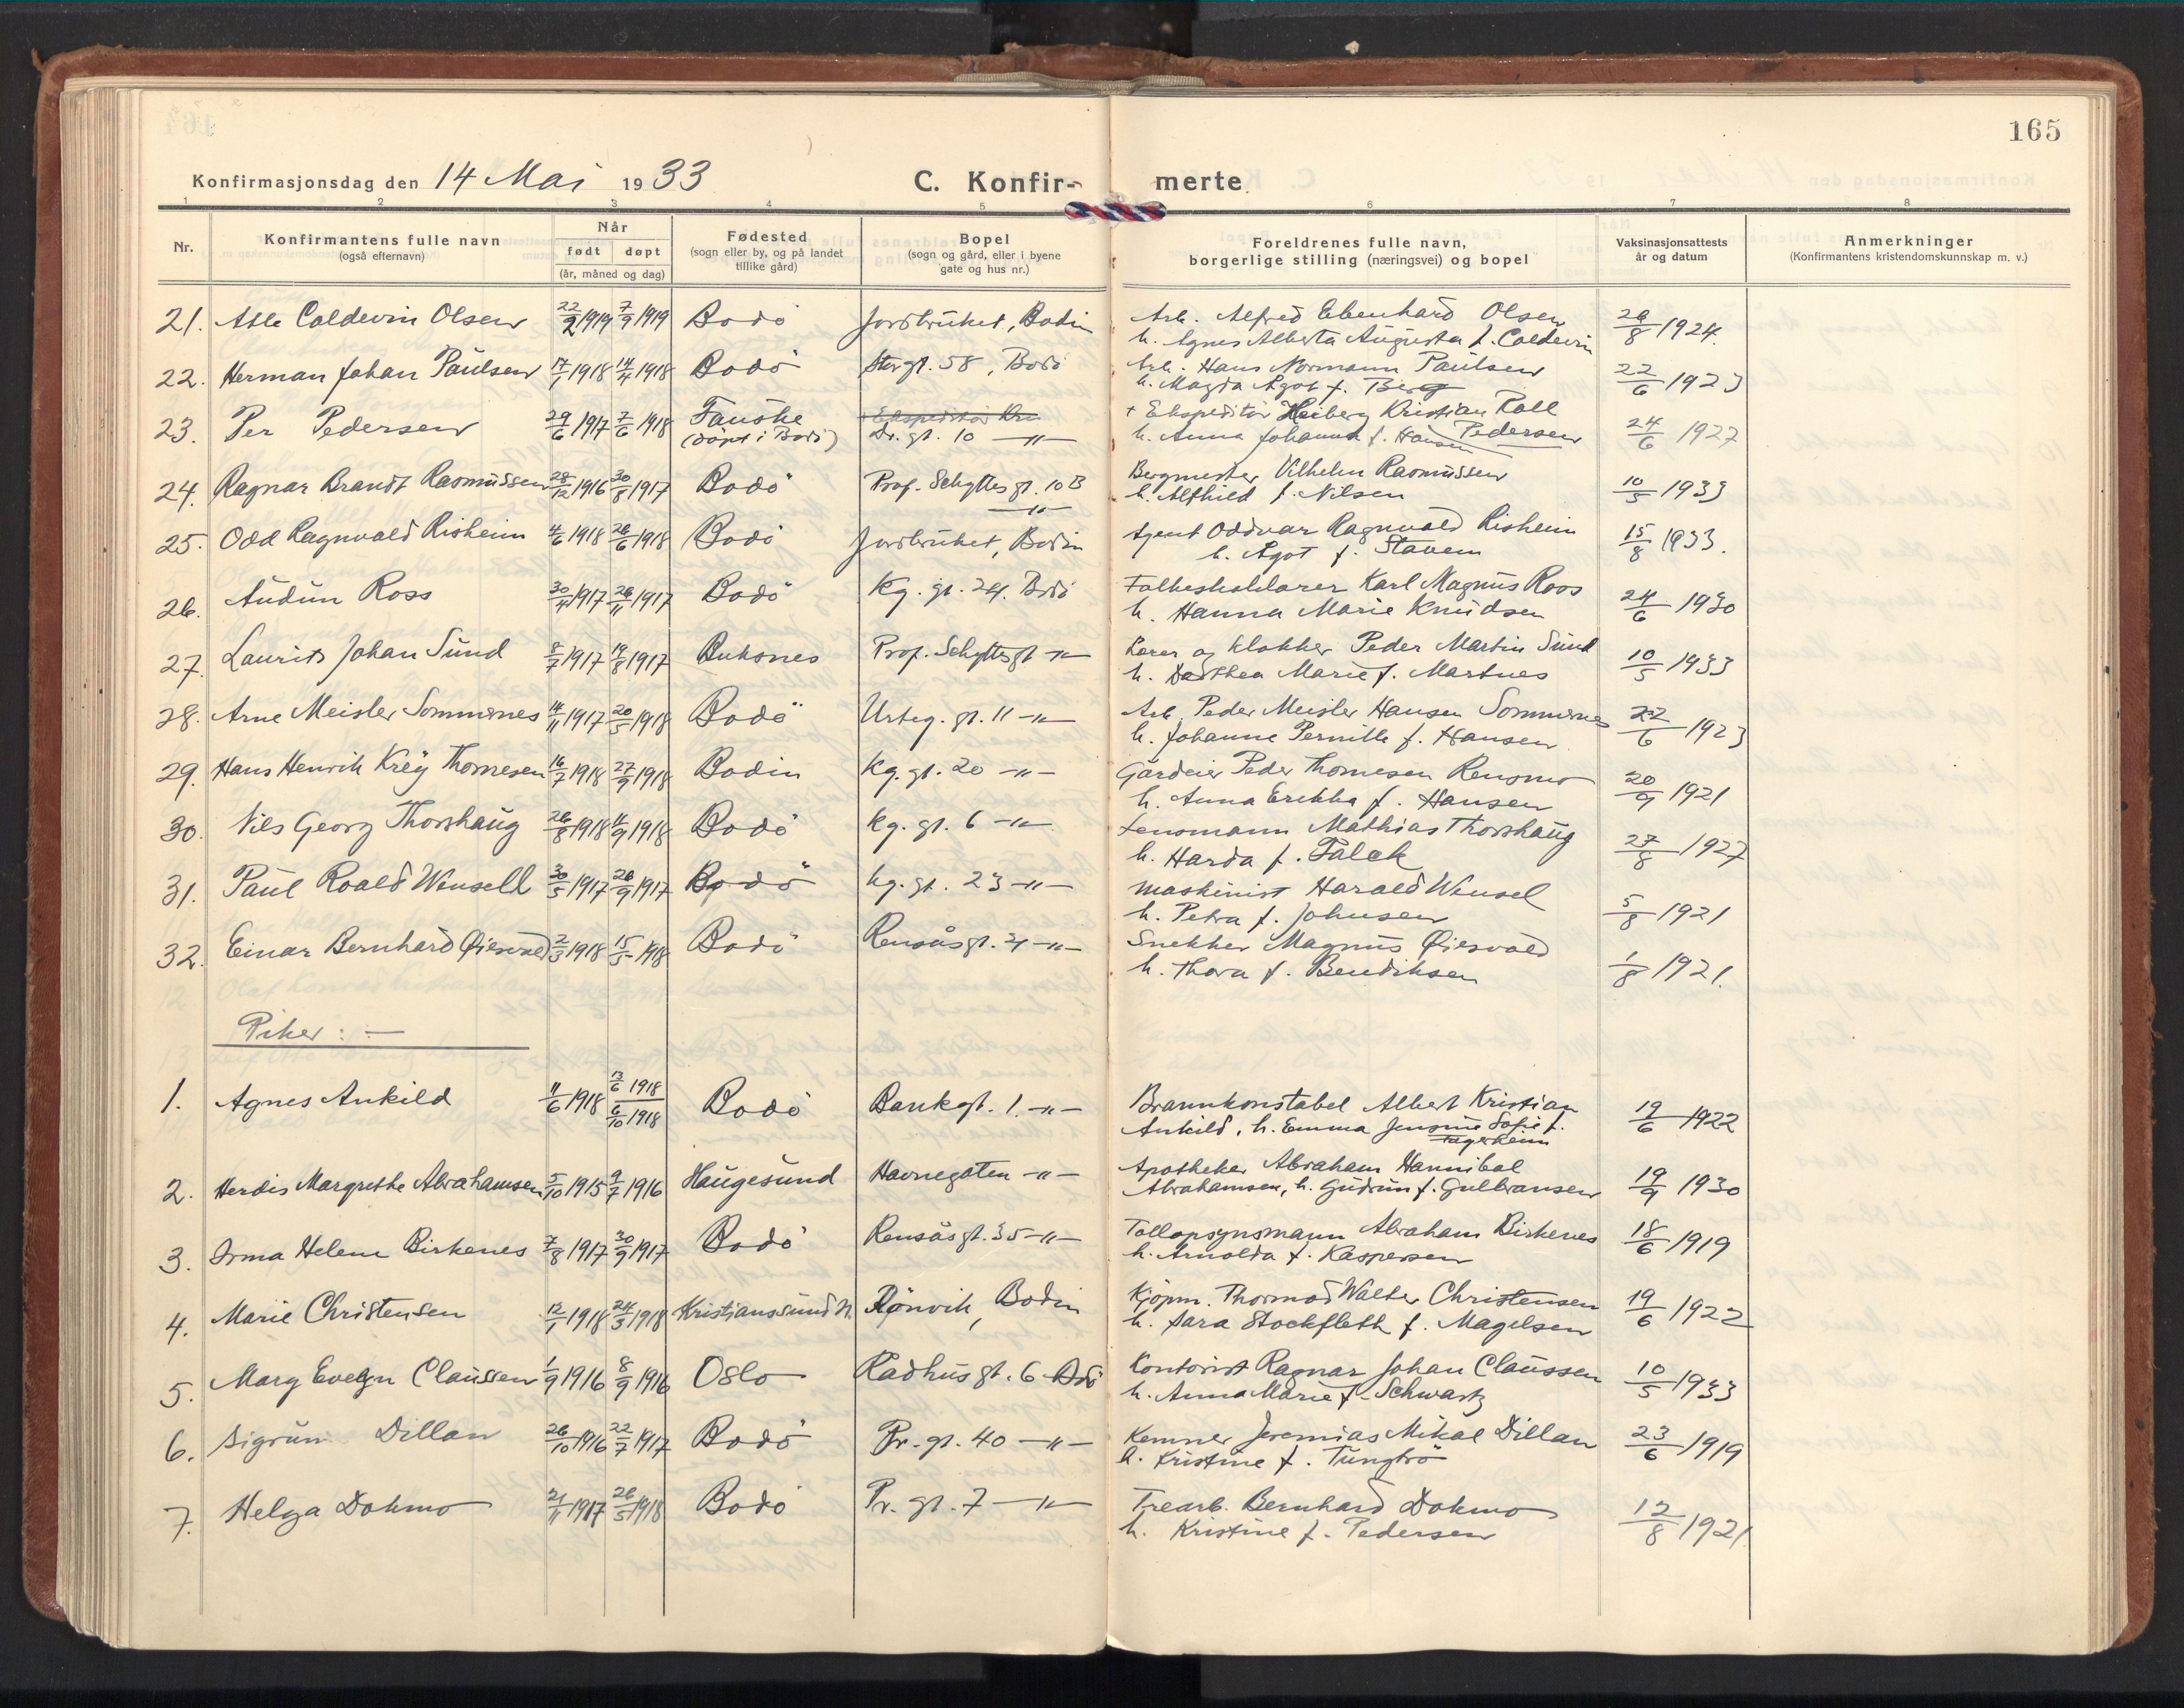 165
Konfirmasjonsdag den 14 Mai 1933
C. Konfir- merte
1 2 3 4 5 6 7 8
Nr. Konfirmantens fulle navn (også efternavn) Når født døpt (år, måned og dag) Fødested (sogn eller by, og på landet tillike gård) Bopel (sogn og gård, eller i byene gate og hus nr.) Foreldrenes fulle navn, borgerlige stilling (næringsvei) og bopel Vaksinasjonsattests år og datum Anmerkninger (Konfirmantens kristendomskunnskap m. v.)
21. Atle Coldevin Olsen 22/2 1919 7/9 1919 Bodö Jordbruket, Bodin Arb. Alfred Edenhard Olsen 26/8 1924.
h. Agnes Alberta Augusta f. Coldevin
22. Herman Johan Paulsen 17/1 1918 14/4 1918 Bodö Storgt. 58, Bodö Arb. Hans Normann Paulsen 22/6 1923
h. Magda Agot f. Berg
23. Per Pedersen 29/6 1917 7/6 1918 Fauske Ekspeditör Kri + Ekspeditör Heiberg Kristian Roll 24/6 1927
(döpt i Bodö) Dr. gt. 10 -"- h. Anna Johanna f. Hansen Pedersen
24. Ragnar Brandt Rasmussen 28/12 1916 30/8 1917 Bodö Prof. Schyttes gt. 10 B -"- Bergmester Vilhelm Rasmussen 10/5 1933
h. Alfhild f. Nilsen
25. Odd Ragnvald Risheim 4/6 1918 26/6 1918 Bodö Jordbruket, Bodin Agent Oddvar Ragnvald Risheim 15/8 1933.
h. Agot f. Stavem
26. Audun Ross 1917 26/11 1917 Bodö Kg. gt. 24. Bodö Folkeskolelærer Karl Magnus Roos 24/6 1930
h. Hanna Marie Knudsen
27. Laurits Johan Sund 8/7 1917 19/8 1917 Buksnes Prof. Schyttesgt -"- Lærer og klokker Peder Martin Sund 10/5 1933
h. Dorthea Marie f. Martnes
28. Arne Meisler Sommernes 14/11 1917 20/5 1918 Bodö Urteg. gt. 11 -"- Arb. Peder Meisler Hansen Sommernes 22/6 1923
h. Johanne Pernille f. Hansen
29. Hans Henrik Krey Thomesen 16/7 1918 27/9 1918 Bodin Kg. gt. 20 -"- Gårdeier Peder Thomesen Rensmo 20/9 1921
h. Anna Erikka f. Hansen
30. Nils Georg Thorshaug 26/8 1918 1918 Bodö Kg. gt. 6 -"- Lensmann Mathias Thorshaug 27/8 1927
h. Harda f. Falck
31. Paul Roald Wensell 30/5 1917 26/9 1917 Bodö Kg. gt. 23 -"- Maskinist Harald Wensel 5/8 1921
h. Petra f. Johnsen
32. Einar Bernhard Øiesvold 2/3 1918 15/5 1918 Bodö Rensåsgt. 4 -"- Snekker Magnus Øiesvold 1/8 1921.
h. Thora f. Bendiksen
Piker: —
1. Agnes Ankild 11/6 1918 13/6 1918 6/10 1918 Bodö Bankgt. 1. -"- Brannkonstabel Albert Kristian 19/6 1922
Ankild, h. Emma Jensine Sofie f. Fagerheim
2. Herdis Margrethe Abrahamsen 5/10 1915 9/7 1916 Haugesund Havnegaten -"- Apotheker Abraham Hannibal 19/9 1930
Abrahamsen, h. Gudrun f. Gulbransen
3. Irma Helene Birkenes 7/8 1917 30/9 1917 Bodö Rensåsgt. 35 -"- Tollopsynsmann Abraham Birkenes 18/6 1919
h. Arnolda f. Kaspersen
4. Marie Christensen 12/1 1918 24/3 1918 Kristianssund N. Rönvik, Bodin Kjöpm. Thormod Walter Christensen 19/6 1922
h. Sara Stockfleth f. Magelsen
5. Mary Evelyn Claussen 1/9 1916 8/9 1916 Oslo Rådhusgt. 6 Bdö Kontorist Ragnar Johan Claussen 10/5 1933
h. Anna Marie f. Schwartz
6. Sigrun Dillan 26/10 1916 22/7 1917 Bodö Pr. gt. 40 -"- Kemner Jeremias Mikal Dillan 23/6 1919
h. Kristine f. Tungtrö
7. Helga Dokmo 21/11 1917 26/5 1918 Bodö Pr. gt. 7 -"- Trearb. Bernhard Dokmo 12/8 1921
h. Kristine f. Pedersen